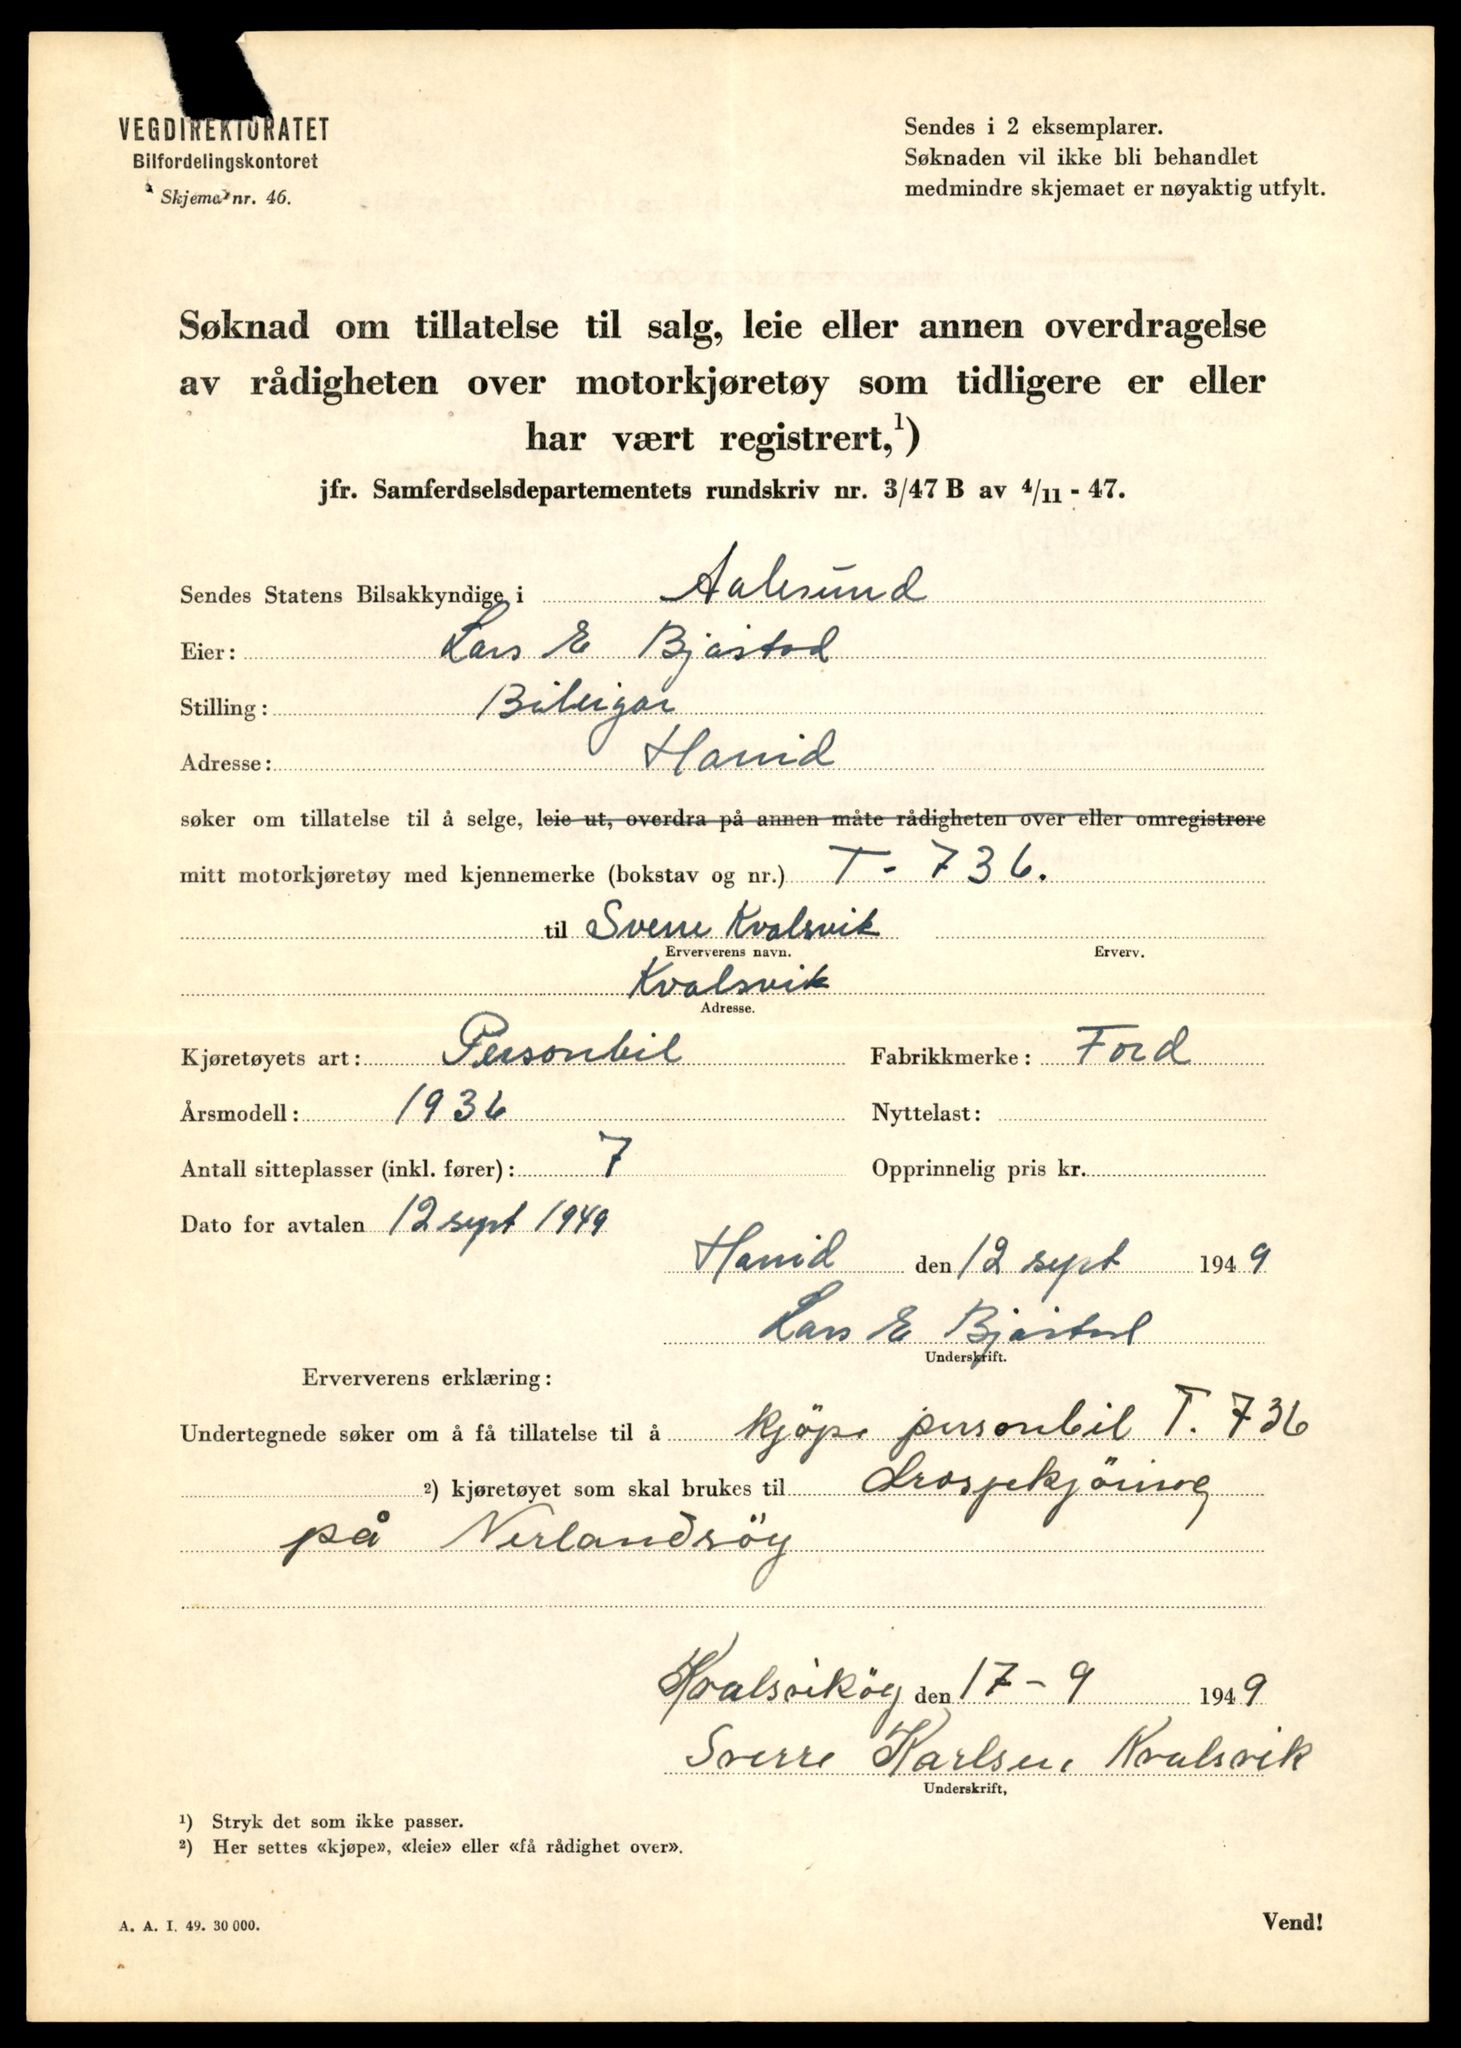 VEGDIREKTORATET
Bilfordelingskontoret
Skjema nr. 46.
Sendes i 2 eksemplarer.
Søknaden vil ikke bli behandlet
medmindre skjemaet er nøyaktig utfylt.
Søknad om tillatelse til salg, leie eller annen overdragelse
av rådigheten over motorkjøretøy som tidligere er eller
har vært registrert,¹)
jfr. Samferdselsdepartementets rundskriv nr. 3/47 B av 4/11 - 47.
Sendes Statens Bilsakkyndige i Aalesund
Eier: Lars E Bjåstad
Stilling: Bileigar
Adresse: Havid
søker om tillatelse til å selge, leie ut, overdra på annen måte rådigheten over eller omregistrere
mitt motorkjøretøy med kjennemerke (bokstav og nr.) T - 736.
til Sverre Kvalsvik
Erververens navn. Erverv.
Kvalsvik
Adresse.
Kjøretøyets art: Personbil Fabrikkmerke: Ford
Årsmodell: 1936 Nyttelast:
Antall sitteplasser (inkl. fører): 7 Opprinnelig pris kr.
Dato for avtalen 12 sept 1949
Havid den 12 sept 1949
Lars E Bjåstad
Underskrift.
Erververens erklæring:
Undertegnede søker om å få tillatelse til å kjöpe personbil T. 736
²) kjøretøyet som skal brukes til drosjekjöring
på Nerlandsöy
Kvalsviköy den 17 - 9 1949
Sverre Karlsen Kvalsvik
Underskrift,
¹) Stryk det som ikke passer.
²) Her settes «kjøpe», «leie» eller «få rådighet over».
A. A. I. 49. 30 000.
Vend!